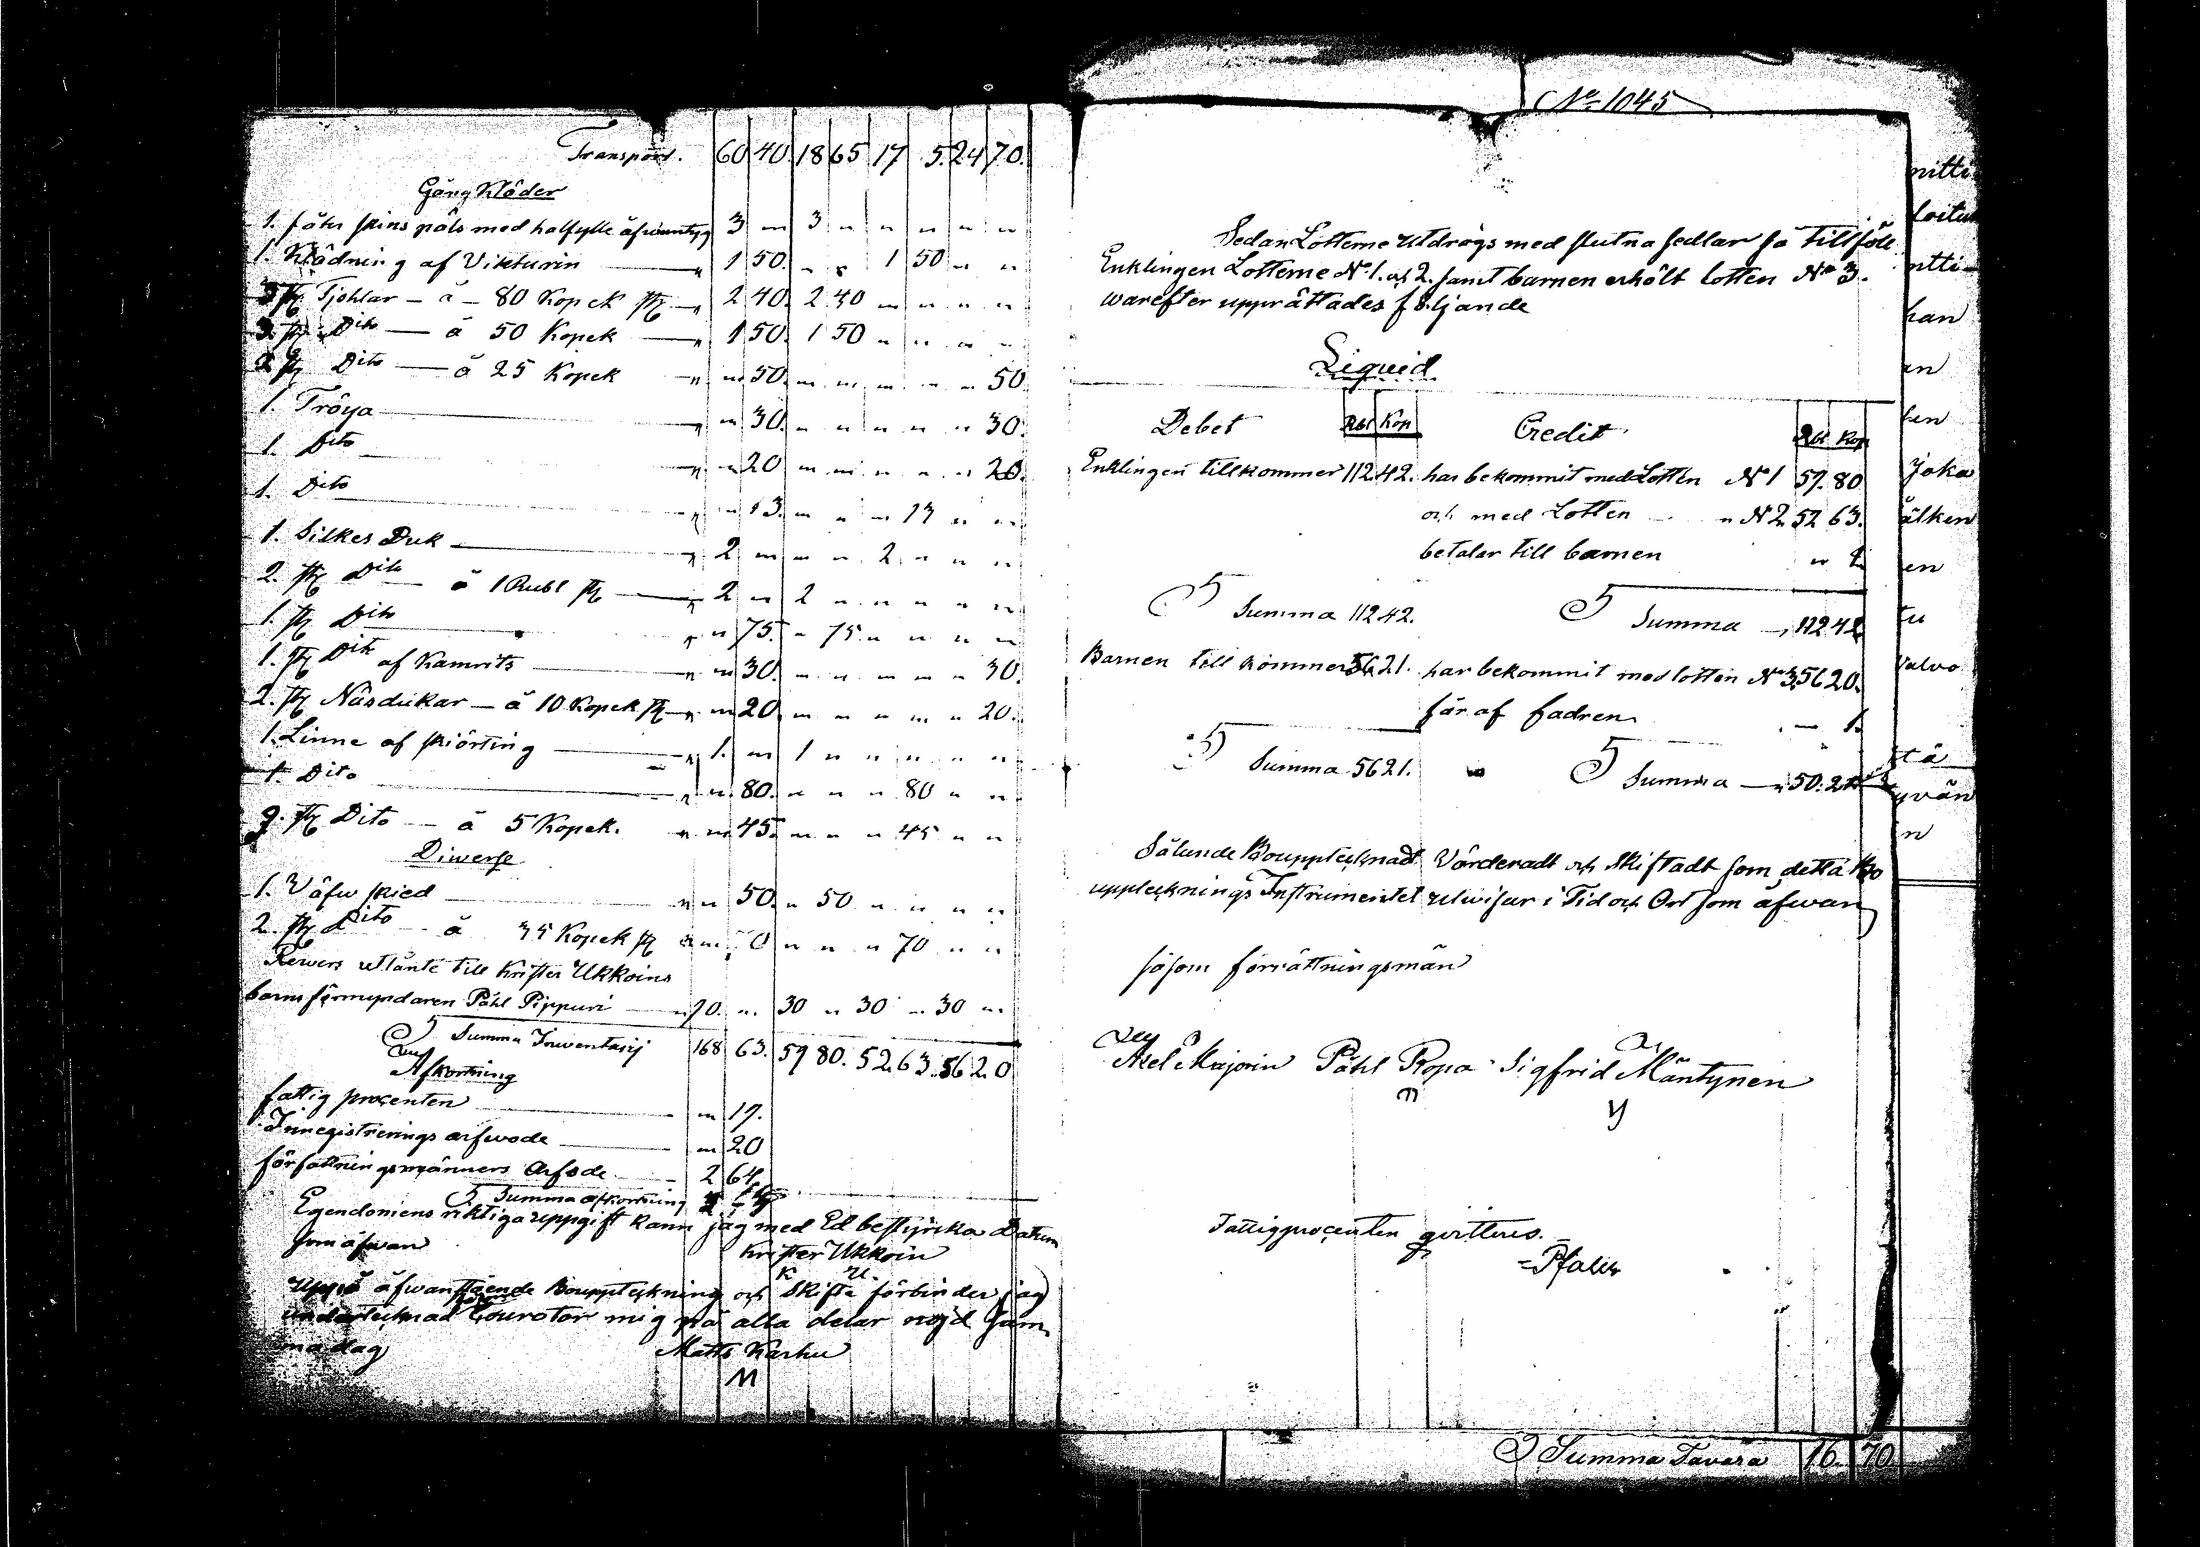 Transport. 60 40 18 65 17 5. 24 70.
Gång Kläder
1. fåhr skins päls med halfylle 3 " 3 " " " " "
1. Klädning af Vikturin " 1 50. " " 1 50 " "
3 st Tjohlar - á - 80 Kopek st " 2 40. 2 40 " " " "
3. st Dito - á 50 Kopek " 1 50. 1 50 " " " "
2 st Dito - á 25 Kopek " " 50. " " " " " 50
1. Tröya " " 30. " " " " " 30.
1. Dito " " 20 " " " " " 20.
1. Dito " " 13. " " " 13 " "
1. Silkes Duk " 2 " " " 2 " " "
2. st Dito á 1 Rubl st " 2 " 2 " " " " "
1. st Dito " " 75. " 75. " " " "
1. st Dito af Kamrits " " 30. " " " " " 30.
2. st Näsdukar - á 10 Kopek st " " 20 " " " " " 20.
1. Linne af skiörting " 1. " 1 " " " " "
1. Dito " " 80. " " " 80 " "
9. st Dito - á 5 Kopek. " " 45. " " " 45 " "
Diwerse
1. Väfw skied " " 50. " 50 " " " "
2. st Dito á 35 Kopek st " " 70 " " " 70 " "
Rewers utlånte till Krister Ukkoins
barns förmyndaren Påhl Pippuri " 90. " 30 " 30 " 30 "
Summa Inwentarij 168 63. 59 80. 52. 63. 56 20
Afkortning
fattig procenten " 17.
Inregistrerings arfwode " 20
författningsmänners Arfode 2 64.
Summa afkortning
Egendomens riktiga uppgift kann jag med Ed bestyrka Datum
som äfwan Krister Ukkoin
K U.
Uppå äfwanstående Bouppteckning och Skifte förbinder jag
undertecknad Courator mig på alla delar nöjd Sam
ma dag Matts Karhu
M
No 1045
Sedan Lotterne utdrogs med slutna sedlar så tillföll
Enklingen Lotterne No 1. och 2. samt barnen erhölt lotten No 3.
warefter upprättades följande
Liquid
Debet Rbl Kop Credit Rbl Kop
Enklingen tillkommer 112 42. har bekommit med Lotten No 1 59. 80
och med Lotten " No 2 52 63.
betalar till barnen " 1.
Summa 112 42. Summa 112 42
Barnen till kommer 56 21. har bekommit med lotten No 3 56 20.
får af fadren " 1.
Summa 56 21. Summa 50. 21
Sålunde Bouppteknadt Värderadt och Skiftadt som detta Bo
uppteknings Instrumentet utwisar i Tid och Ort som äfwan
såsom förrättningsmän
Axel Marjorin Påhl Ropa Sigfrid Mäntynen
Fattigprocenten qvitteres.
Summa Tavara 16. 70
nitti
loitus
ntti-
han
en
hen
Joka
älken
en
tu
Valvo
tä
yvän
n